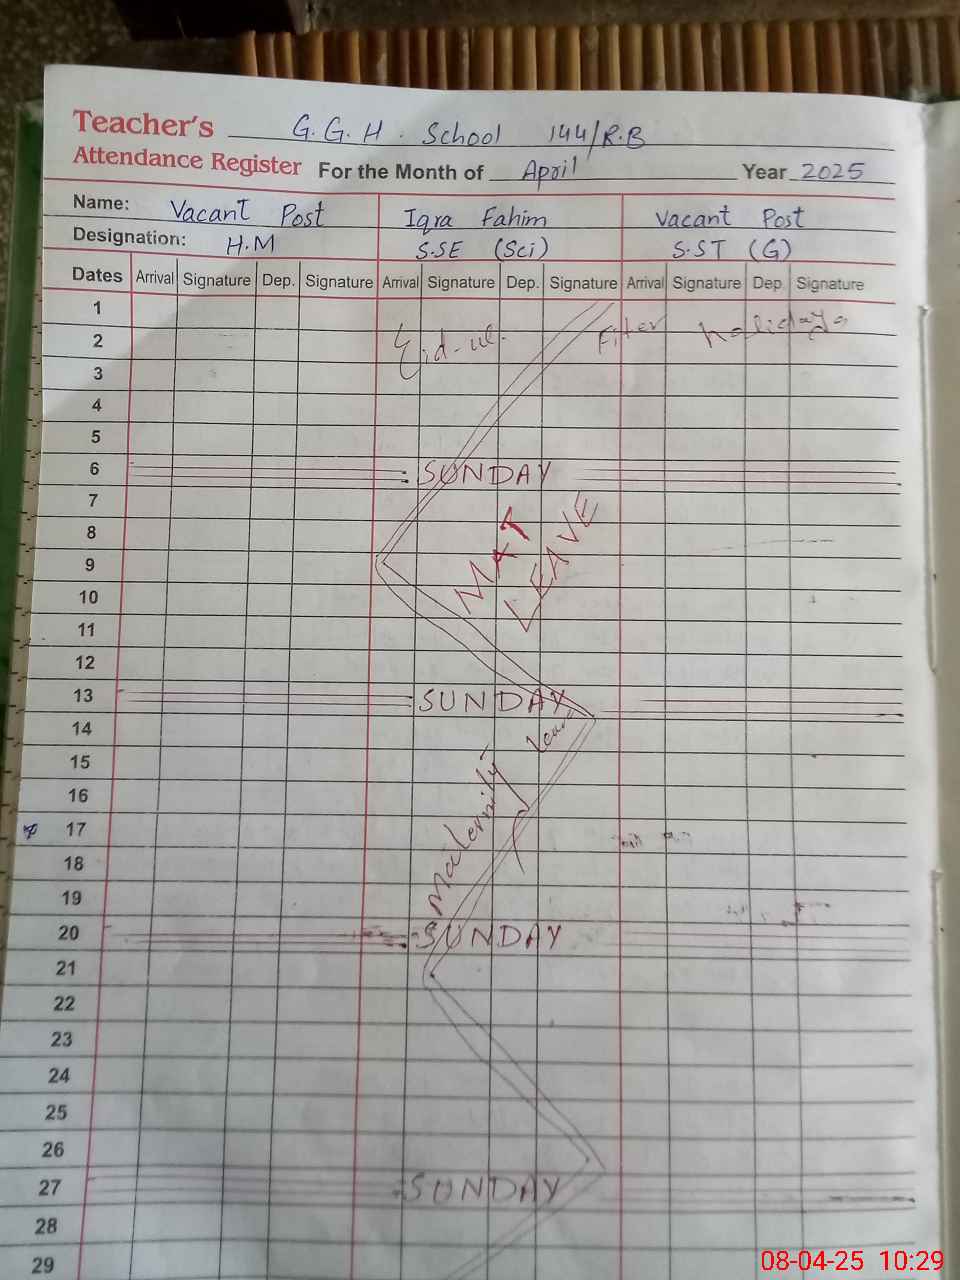 Teacher's G.G.H. School 144/R.B
Attendance Register For the Month of April Year 2025
Name: Vacant Post Iqra Fahim Vacant Post
Designation: H.M S.SE (Sci) S.ST (G)
Dates Arrival Signature Dep. Signature Arrival Signature Dep. Signature Arrival Signature Dep. Signature
1
2 Eid-ul. Fiter holidays
3
4
5
6 SUNDAY
7
8 MAT
9 LEAVE
10
11
12
13 SUNDAY
14
15 Maternity Leave
16
17
18
19
20 SUNDAY
21
22
23
24
25
26
27 SUNDAY
28
29
08-04-25 10:29